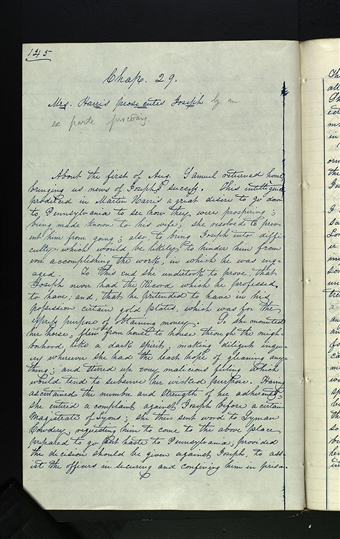 145
Chap. 29.
Mrs. Harris prosecutes Joseph by an
ex parte proceeding.
About the first of Aug. Samuel returned home
bringing us news of Joseph's success. This intelligence
produced in Martin Harris a great desire to go down
to Pennsylvania to see how they were prospering;
being made known to his wife, she resolved to prev-
ent him from going; also to bring Joseph into diffi-
culty, which would be likely to hinder him from
ever accomplishing the work, in which he was eng-
aged. To this end she undertook to prove, that
Joseph never had the Record which he professed
to have, and, that he pretended to have in his
possession certain gold plates, which was for the
express purpose of obtaining money. So she mounted
her horse, flew from house to house through the neigh-
borhood, like a dark spirit, making diligent inqui-
ry wherever she had the least hope of gleaning any-
thing; and stirred up every malicious feeling which
would tend to subserve her wicked purpose. Having
ascertained the number and strength of her adherents,
she entered a complaint against Joseph before a certain
Magistrate of Lyons; she then sent word to Lyman
Cowdery, requesting him to come to the above place
prepared to go post haste to Pennsylvania; provided
the decision should be given against Joseph, to ass-
ist the officers in securing and confining him in prison.